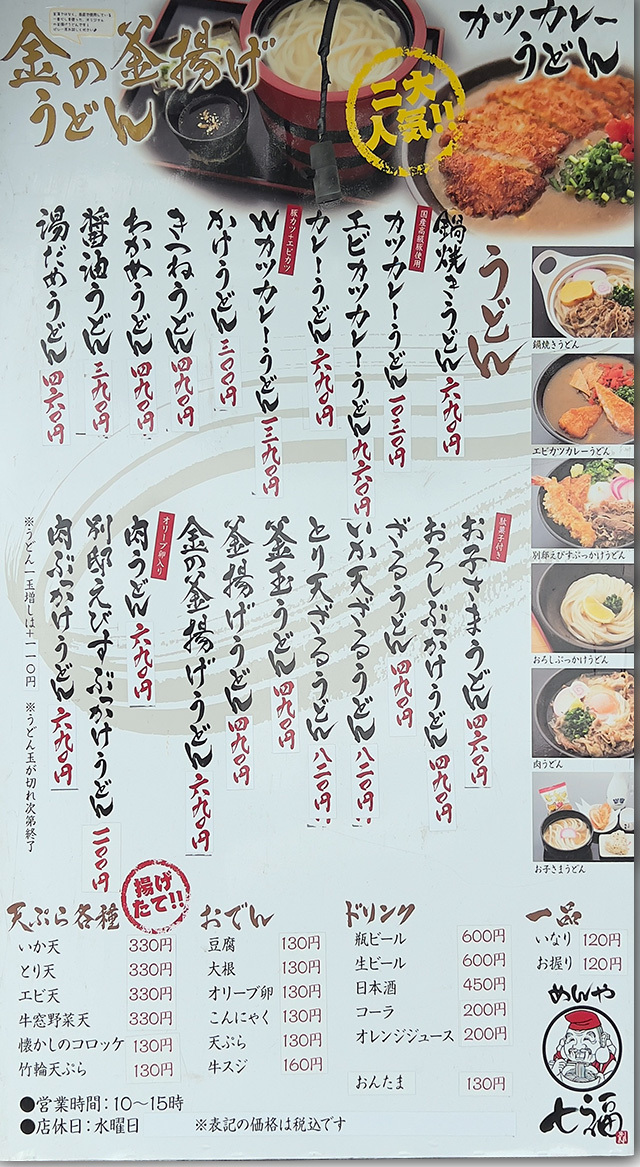 金の釜揚げ
うどん
二大
人気!!
カツカレー
うどん
うどん
鍋焼きうどん 六九〇円
国産高級豚使用
カツカレーうどん 一〇三〇円
エビカツカレーうどん 九六〇円
カレーうどん 六九〇円
豚カツ+エビカツ
Wカツカレーうどん 一三九〇円
かけうどん 三〇〇円
きつねうどん 四九〇円
わかめうどん 四九〇円
醤油うどん 三九〇円
湯だめうどん 四六〇円
駄菓子付き
お子さまうどん 四六〇円
おろしぶっかけうどん 四九〇円
ざるうどん 四九〇円
いか天ざるうどん 八二〇円
とり天ざるうどん 八二〇円
釜玉うどん 四九〇円
釜揚げうどん 四九〇円
金の釜揚げうどん 六九〇円
オリーブ卵入り
肉うどん 六九〇円
別邸えびすぶっかけうどん 一一〇〇円
肉ぶっかけうどん 六九〇円
※うどん一玉増しは+一一〇円 ※うどん玉が切れ次第終了
鍋焼きうどん
エビカツカレーうどん
別邸えびすぶっかけうどん
おろしぶっかけうどん
肉うどん
お子さまうどん
天ぷら各種
揚げ
たて!!
いか天 330円
とり天 330円
エビ天 330円
牛窓野菜天 330円
懐かしのコロッケ 130円
竹輪天ぷら 130円
おでん
豆腐 130円
大根 130円
オリーブ卵 130円
こんにゃく 130円
天ぷら 130円
牛スジ 160円
ドリンク
瓶ビール 600円
生ビール 600円
日本酒 450円
コーラ 200円
オレンジジュース 200円
おんたま 130円
一品
いなり 120円
お握り 120円
めんや
七福
●営業時間:10～15時
●店休日:水曜日 ※表記の価格は税込です